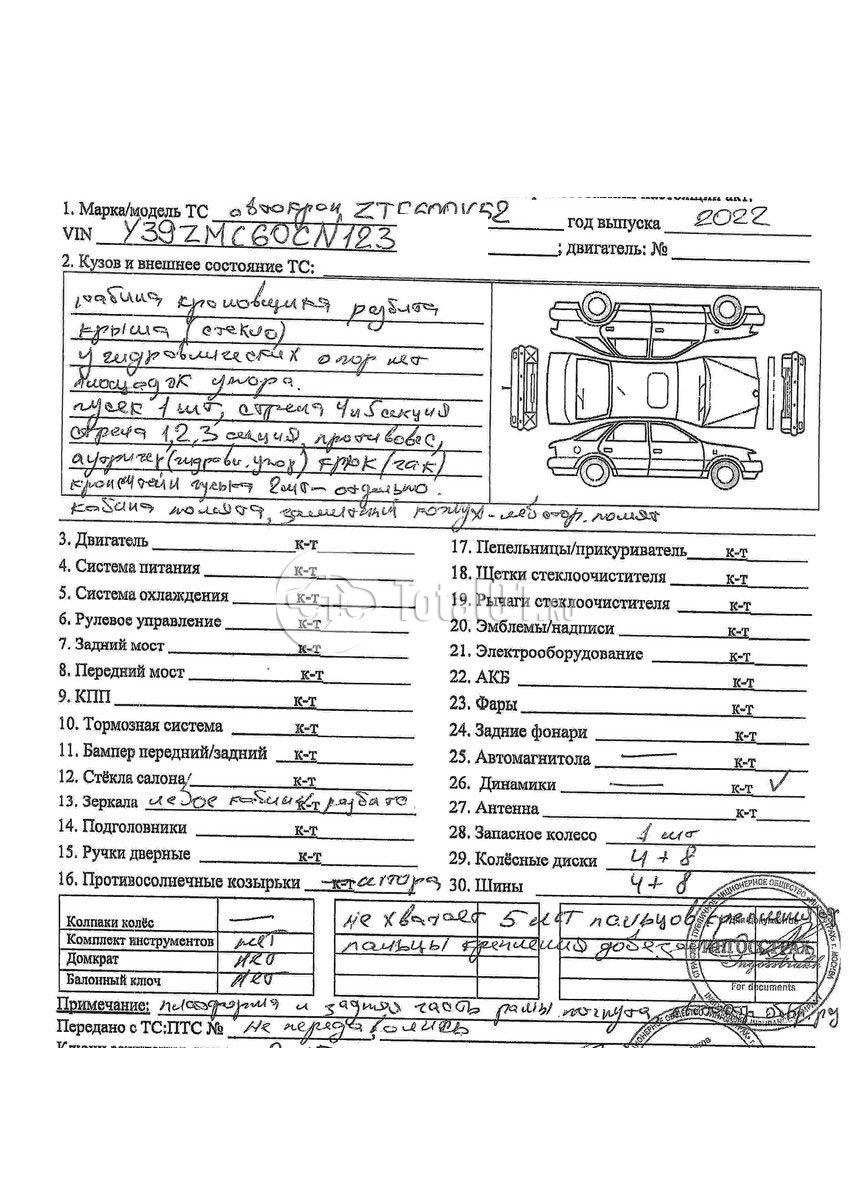 1. Марка/модель ТС автокран ZTC600V552 год выпуска 2022
VIN Y39ZMC60CN123 ; двигатель: №
2. Кузов и внешнее состояние ТС:
кабина крановщика разбита
крыша (стекло)
у гидравлических опор нет
площадок упора.
гусек 1 шт, стрела 4 и 5 секция
стрела 1,2,3 секция, противовес,
аутригер (гидравл. упор) крюк (гак)
кронштейн гуська 2шт - отдельно.
кабина помята, защитный кожух - лев стор. помят
3. Двигатель к-т
4. Система питания к-т
5. Система охлаждения к-т
6. Рулевое управление к-т
7. Задний мост к-т
8. Передний мост к-т
9. КПП к-т
10. Тормозная система к-т
11. Бампер передний/задний к-т
12. Стёкла салона к-т
13. Зеркала левое кабины к-т разбито.
14. Подголовники к-т
15. Ручки дверные к-т
16. Противосолнечные козырьки к-т штора
17. Пепельницы/прикуриватель к-т
18. Щетки стеклоочистителя к-т
19. Рычаги стеклоочистителя к-т
20. Эмблемы/надписи к-т
21. Электрооборудование к-т
22. АКБ к-т
23. Фары к-т
24. Задние фонари к-т
25. Автомагнитола — к-т
26. Динамики — к-т ✓
27. Антенна к-т
28. Запасное колесо 1 шт
29. Колёсные диски 4+8
30. Шины 4+8
Колпаки колёс —
Комплект инструментов нет
Домкрат нет
Балонный ключ нет
не хватает 5 шт пальцов крепления
пальцы крепления
ИНГОССТРАХ
Ingosstrakh
For documents
Примечание: платформа и задняя часть рамы погнута
Передано с ТС:ПТС № не передавались
Total01.ru